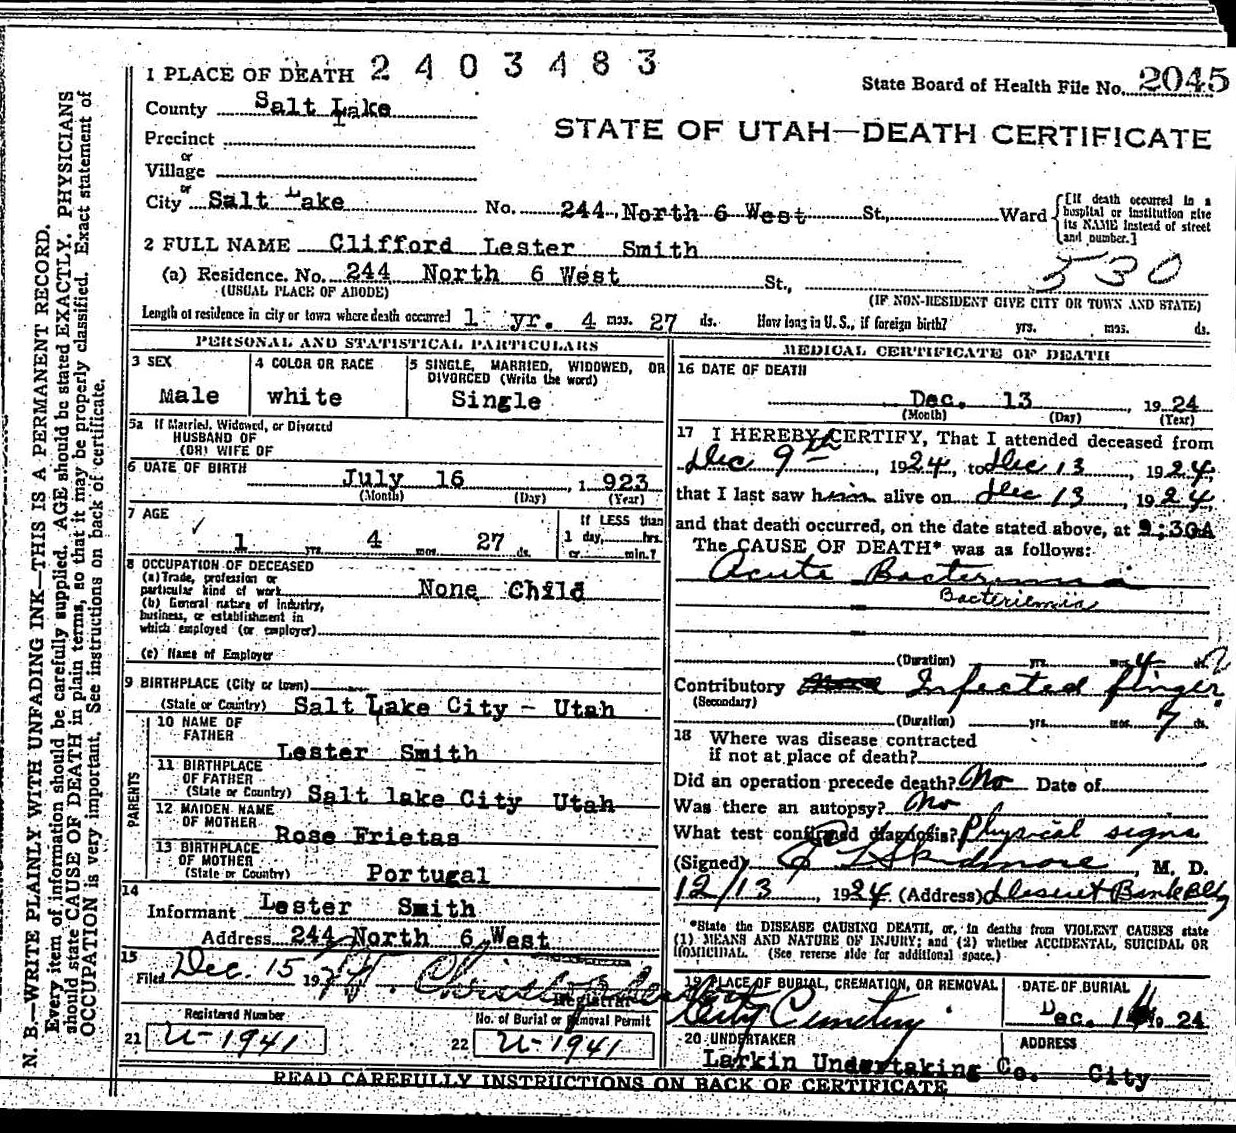 1 PLACE OF DEATH 2 4 0 3 4 8 3
State Board of Health File No. 2045
County Salt Lake
STATE OF UTAH—DEATH CERTIFICATE
Precinct
or
Village
or
City Salt Lake No. 244 North 6 West St., Ward
[If death occurred in a hospital or institution give its NAME instead of street and number.]
2 FULL NAME Clifford Lester Smith
530
(a) Residence. No. 244 North 6 West St.,
(USUAL PLACE OF ABODE) (IF NON-RESIDENT GIVE CITY OR TOWN AND STATE)
Length of residence in city or town where death occurred 1 yr. 4 mos. 27 ds. How long in U. S., if foreign birth? yrs. mos. ds.
PERSONAL AND STATISTICAL PARTICULARS
3 SEX
Male
4 COLOR OR RACE
white
5 SINGLE, MARRIED, WIDOWED, OR
DIVORCED (Write the word)
Single
5a If Married, Widowed, or Divorced
HUSBAND OF
(OR) WIFE OF
6 DATE OF BIRTH
July 16, 1923
(Month) (Day) (Year)
7 AGE
1 yrs. 4 mos. 27 ds.
If LESS than
1 day, hrs.
or min.?
8 OCCUPATION OF DECEASED
(a) Trade, profession or
particular kind of work None Child
(b) General nature of industry,
business, or establishment in
which employed (or employer)
(c) Name of Employer
9 BIRTHPLACE (City or town)
(State or Country) Salt Lake City - Utah
PARENTS
10 NAME OF
FATHER
Lester Smith
11 BIRTHPLACE
OF FATHER
(State or Country) Salt lake City Utah
12 MAIDEN NAME
OF MOTHER
Rose Frietas
13 BIRTHPLACE
OF MOTHER
(State or Country) Portugal
14
Informant Lester Smith
Address 244 North 6 West
15
Filed Dec. 15 1924
Registrar
Registered Number No. of Burial or Removal Permit
21 U-1941 22 U-1941
MEDICAL CERTIFICATE OF DEATH
16 DATE OF DEATH
Dec. 13, 1924
(Month) (Day) (Year)
17 I HEREBY CERTIFY, That I attended deceased from
Dec 9th, 1924, to Dec 13, 1924,
that I last saw him alive on Dec 13, 1924
and that death occurred, on the date stated above, at 9:30A
The CAUSE OF DEATH* was as follows:
Acute Bacteriemia
Bacteriemia
(Duration) yrs. mos. 4 ds.
Contributory Infected finger
(Secondary)
(Duration) yrs. mos. 7 ds.
18 Where was disease contracted
if not at place of death?
Did an operation precede death? No Date of
Was there an autopsy? No
What test confirmed diagnosis? Physical signs
(Signed) Skidmore, M. D.
12/13, 1924 (Address) Deseret Bank Bldg
*State the DISEASE CAUSING DEATH, or, in deaths from VIOLENT CAUSES state
(1) MEANS AND NATURE OF INJURY; and (2) whether ACCIDENTAL, SUICIDAL OR
HOMICIDAL. (See reverse side for additional space.)
19 PLACE OF BURIAL, CREMATION, OR REMOVAL
City Cemetery
DATE OF BURIAL
Dec. 24
20 UNDERTAKER
Larkin Undertaking Co.
ADDRESS
City
READ CAREFULLY INSTRUCTIONS ON BACK OF CERTIFICATE
N. B.—WRITE PLAINLY WITH UNFADING INK—THIS IS A PERMANENT RECORD.
Every item of information should be carefully supplied. AGE should be stated EXACTLY. PHYSICIANS
should state CAUSE OF DEATH in plain terms, so that it may be properly classified. Exact statement of
OCCUPATION is very important. See instructions on back of certificate.